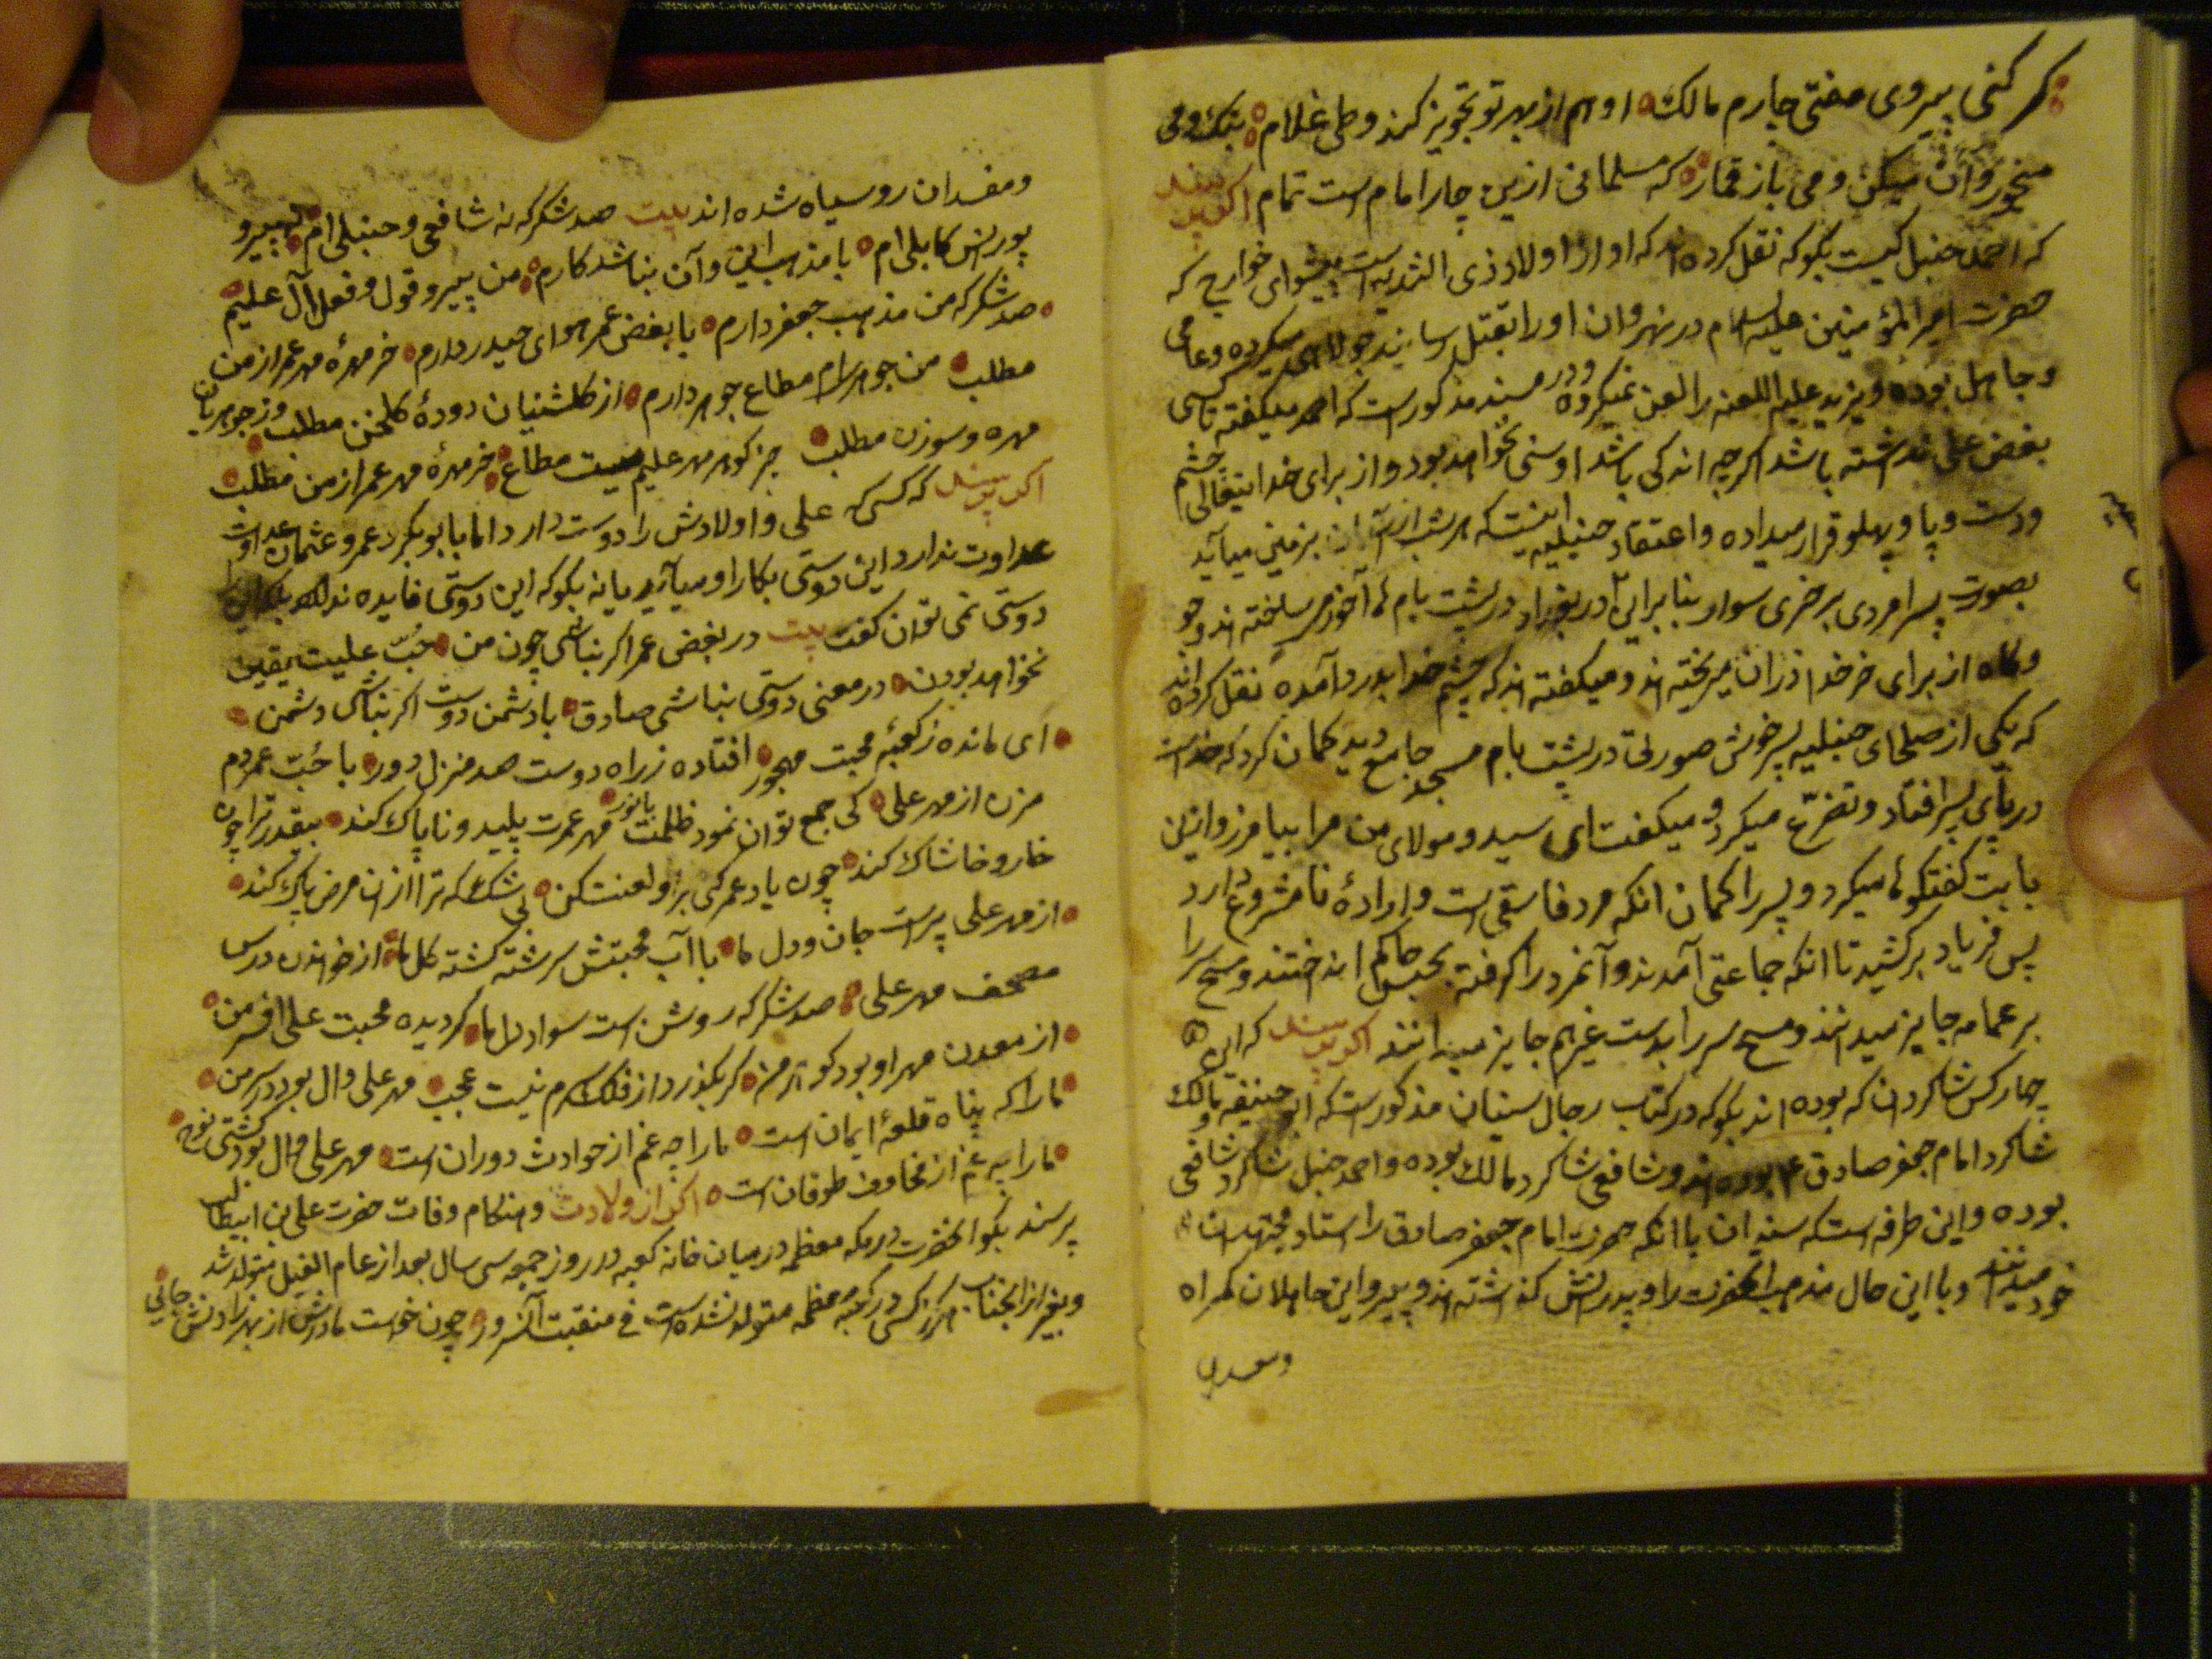 گر کنی پیروی مفتی چارم مالک او هم از بهر تو تجویز کند وطی غلام بنک و می
میخور و آن میکن و می باز قمار که مسلمانی ازین چار امام است تمام اکر پرسند
که احمد حنبل کیست بگو که نقل کرده اند که او از اولاد ذی الثدیه است پیشوای خوارج که
حضرت امیر المؤمنین علیه السلام در نهروان او را بقتل رسانید جولاهی میکرده و عامی
و جاهل بوده و یزید علیه اللعنه را لعن نمیکرده و در مسند مذکور است که احمد میکفته تا کسی
بغض علی نداشته باشد اکر چه اندکی باشد او سنی نخواهد بود و از برای خدایتعالی چشم
و دست و پا و پهلو قرار میداده و اعتقاد حنبلیه اینست که هر شب از آسمان بزمین میآید
بصورت پسر امردی بر خری سوار بنابراین در بغداد در پشت بام ها آخور میساخته اند و جو
و کاه از برای خر خدا در آن میریخته اند و میکفته اند که چشم خدا بدرد آمده نقل کرده اند
که یکی از صلحای حنبلیه پسر خوش صورتی در پشت بام مسجد جامع دید کمان کرد که خداست
در پای پسر افتاد و تضرع میکرد و میکفت ای سید و مولای من مرا بیامرز و ازین
بابت کفتکو ها میکرد و پسر را کمان انکه مرد فاسقی است و ارادهٔ نا مشروع دارد
پس فریاد بر کشید تا انکه جماعتی آمدند و آنمرد را کرفته بحبس حاکم انداختند و مسح سر را
بر عمامه جایز میدانند و مسح سر را بدست غیر هم جایز میدانند اکر پرسند که این
چهار کس شاکردان که بوده اند بگو که در کتب رجال سنیان مذکور است که ابو حنیفه و مالک
شاکرد امام جعفر صادق ع بوده اند و شافعی شاکرد مالک بوده و احمد حنبل شاکرد شافعی
بوده و این طرفه است که سنیان با انکه حضرت امام جعفر صادق را استاد مجتهدان
خود میدانند و با این حال مذهب انحضرت را و پدرانش کذاشته اند و پیرو این جاهلان کمراه
و مفسدان
و مفسدان روسیاه شده اند بیت صد شکر که نه شافعی و حنبلی ام نه پیرو
پور زن کابلی ام با مذهب این و آن نباشد کارم من پیرو قول و فعل آل علیم
صد شکر که من مذهب جعفر دارم با بغض عمر هوای حیدر دارم خر مهرهٔ مهر عمر از من
مطلب من جوهریم مطاع جوهر دارم از کلشنیان دودهٔ کلخن مطلب وز جوهریان
مهره و سوزن مطلب جز کوهر مهر علیم نیست مطاع خر مهرهٔ مهر عمر از من مطلب
اکر پرسند که کسی که علی و اولادش را دوست دارد اما با ابو بکر و عمر و عثمان عداوت
عداوت ندارد این دوستی بکار او میآید یا نه بگو که این دوستی فایده ندارد بلکه این
دوستی نمی توان کفت بیت در بغض عمر اکر نباشی چون من حب علیت یقین
نخواهد بودن در معنی دوستی نباشی صادق با دشمن دوست اکر نباشی دشمن
ای مانده ز کعبهٔ محبت مهجور افتاده ز راه دوست صد منزل دور با حب عمر دم
مزن از مهر علی کی جمع توان نمود ظلمت با نور مهر عمرت پلید و ناپاک کند بیقدر ترا چون
خار و خاشاک کند چون یاد عمر کی برو لعنت کن بی شک که ترا از ان مرض پاک کند
از مهر علی پر است جان و دل ما با آب محبتش سرشته کشته کل ما از خواندن درس
مصحف مهر علی صد شکر که روشن است سواد دل ما کردیده محبت علی افسر من
از معدن مهر او بود کوهر من کر بکذرد از فلک سرم نیست عجب مهر علی و آل بود در سر من
ما را که پناه قلعهٔ ایمان است ما را چه غم از حوادث دوران است مهر علی و آل بود کشتی نوح
ما را چه غم از مخاوف طوفان است اکر از ولادت و هنکام وفات حضرت علی بن ابیطالب
پرسند بگو انحضرت در مکه معظمه در میان خانه کعبه در روز جمعه سی سال بعد از عام الفیل متولد شد
و بغیر از انجناب هرکز کسی در کعبه معظمه متولد نشده است فی منقبت آنسرور چون خواست مادرش از بهر زادنش جائی